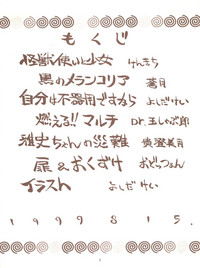 もくじ
怪獣使いと少女 けんきち
黒のメランコリア 蒼月
自分は不器用ですから よしだけい
燃える!! マルチ Dr.玉しゃぶ郎
雅史ちゃんの災難 美月
扉&おくずけ おどっつぉん
イラスト よしだ けい
1999 8 15.